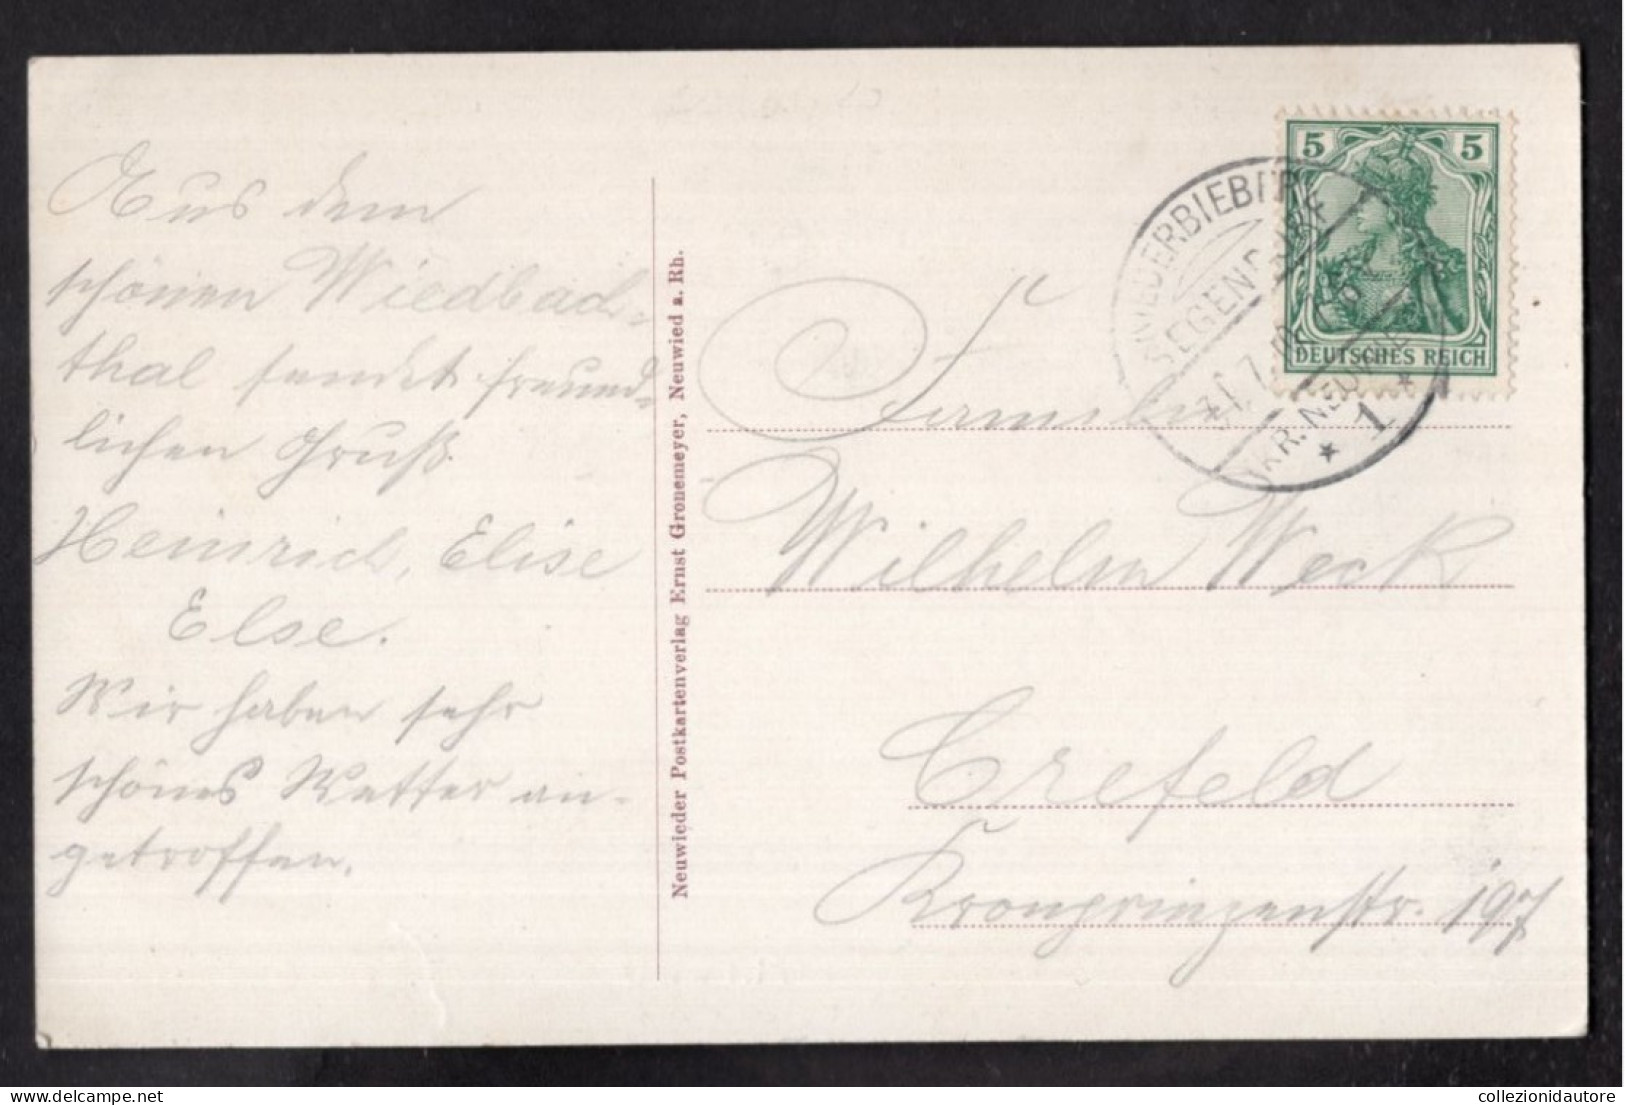 Aus dem
schönen Wiedbach-
thal sendet freund-
lichen Gruß
Heinrich, Elise
Else.
Wir haben sehr
schönes Wetter an-
getroffen.
Neuwieder Postkartenverlag Ernst Gronemeyer, Neuwied a. Rh.
5 5
DEUTSCHES REICH
NIEDERBIEBER
SEGENDORF
(KR. NEUWIED)
* 1 *
Familie
Wilhelm Weck
Crefeld
Kronprinzenstr. 197
collezionidautore